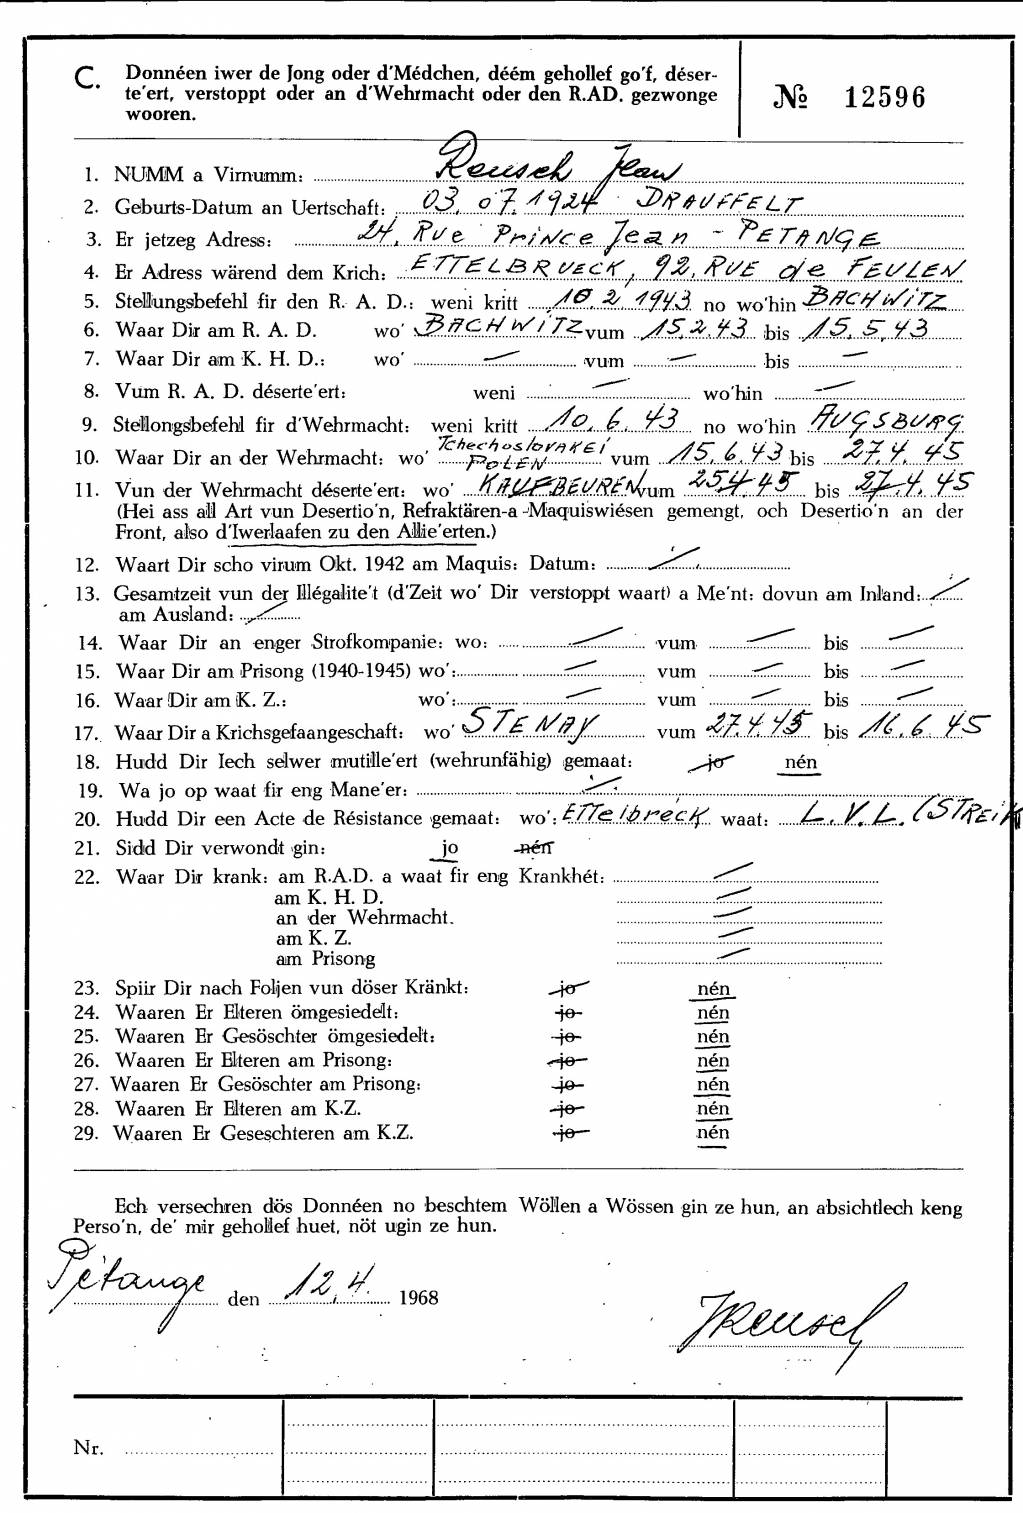 C. Donnéen iwer de Jong oder d'Médchen, déém gehollef go'f, déser-
te'ert, verstoppt oder an d'Wehrmacht oder den R.AD. gezwonge
wooren.
№ 12596
1. NUMM a Virnumm: Reusch Jean
2. Geburts-Datum an Uertschaft: 03. 07. 1924 DRAUFFELT
3. Er jetzeg Adress: 24, Rue Prince Jean - PETANGE
4. Er Adress wärend dem Krich: ETTELBRUECK, 92, RUE de FEULEN
5. Stellungsbefehl fir den R. A. D.: weni kritt 10.2.1943 no wo'hin BACHWITZ
6. Waar Dir am R. A. D. wo' BACHWITZ vum 15.2.43 bis 15.5.43
7. Waar Dir am K. H. D.: wo' — vum — bis —
8. Vum R. A. D. déserte'ert: weni — wo'hin —
9. Stellongsbefehl fir d'Wehrmacht: weni kritt 10. 6. 43 no wo'hin AUGSBURG
10. Waar Dir an der Wehrmacht: wo' Tchechoslovakei POLEN vum 15.6.43 bis 27.4.45
11. Vun der Wehrmacht déserte'ert: wo' KAUFBEUREN vum 25.4.45 bis 27.4.45
(Hei ass all Art vun Desertio'n, Refraktären-a -Maquiswiésen gemengt, och Desertio'n an der
Front, also d'Iwerlaafen zu den Allie'erten.)
12. Waart Dir scho virum Okt. 1942 am Maquis: Datum: —
13. Gesamtzeit vun der Illégalite't (d'Zeit wo' Dir verstoppt waart) a Me'nt: dovun am Inland: —
am Ausland: —
14. Waar Dir an enger Strofkompanie: wo: — vum — bis —
15. Waar Dir am Prisong (1940-1945) wo': — vum — bis —
16. Waar Dir am K. Z.: wo': — vum — bis —
17. Waar Dir a Krichsgefaangeschaft: wo' STENAY vum 27.4.45 bis 16.6.45
18. Hudd Dir Iech selwer mutille'ert (wehrunfähig) gemaat: jo nén
19. Wa jo op waat fir eng Mane'er: —
20. Hudd Dir een Acte de Résistance gemaat: wo': Ettelbreck waat: L.V.L. (STREIK
21. Sidd Dir verwondt gin: jo nén
22. Waar Dir krank: am R.A.D. a waat fir eng Krankhét: —
am K. H. D. —
an der Wehrmacht. —
am K. Z. —
am Prisong —
23. Spiir Dir nach Foljen vun döser Kränkt: jo nén
24. Waaren Er Elteren ömgesiedelt: jo nén
25. Waaren Er Gesöschter ömgesiedelt: jo nén
26. Waaren Er Elteren am Prisong: jo nén
27. Waaren Er Gesöschter am Prisong: jo nén
28. Waaren Er Elteren am K.Z. jo nén
29. Waaren Er Geseschteren am K.Z. jo nén
Ech versechren dös Donnéen no beschtem Wöllen a Wössen gin ze hun, an absichtlech keng
Perso'n, de' mir gehollef huet, nöt ugin ze hun.
Pétange den 12.4. 1968
JReusch
Nr.